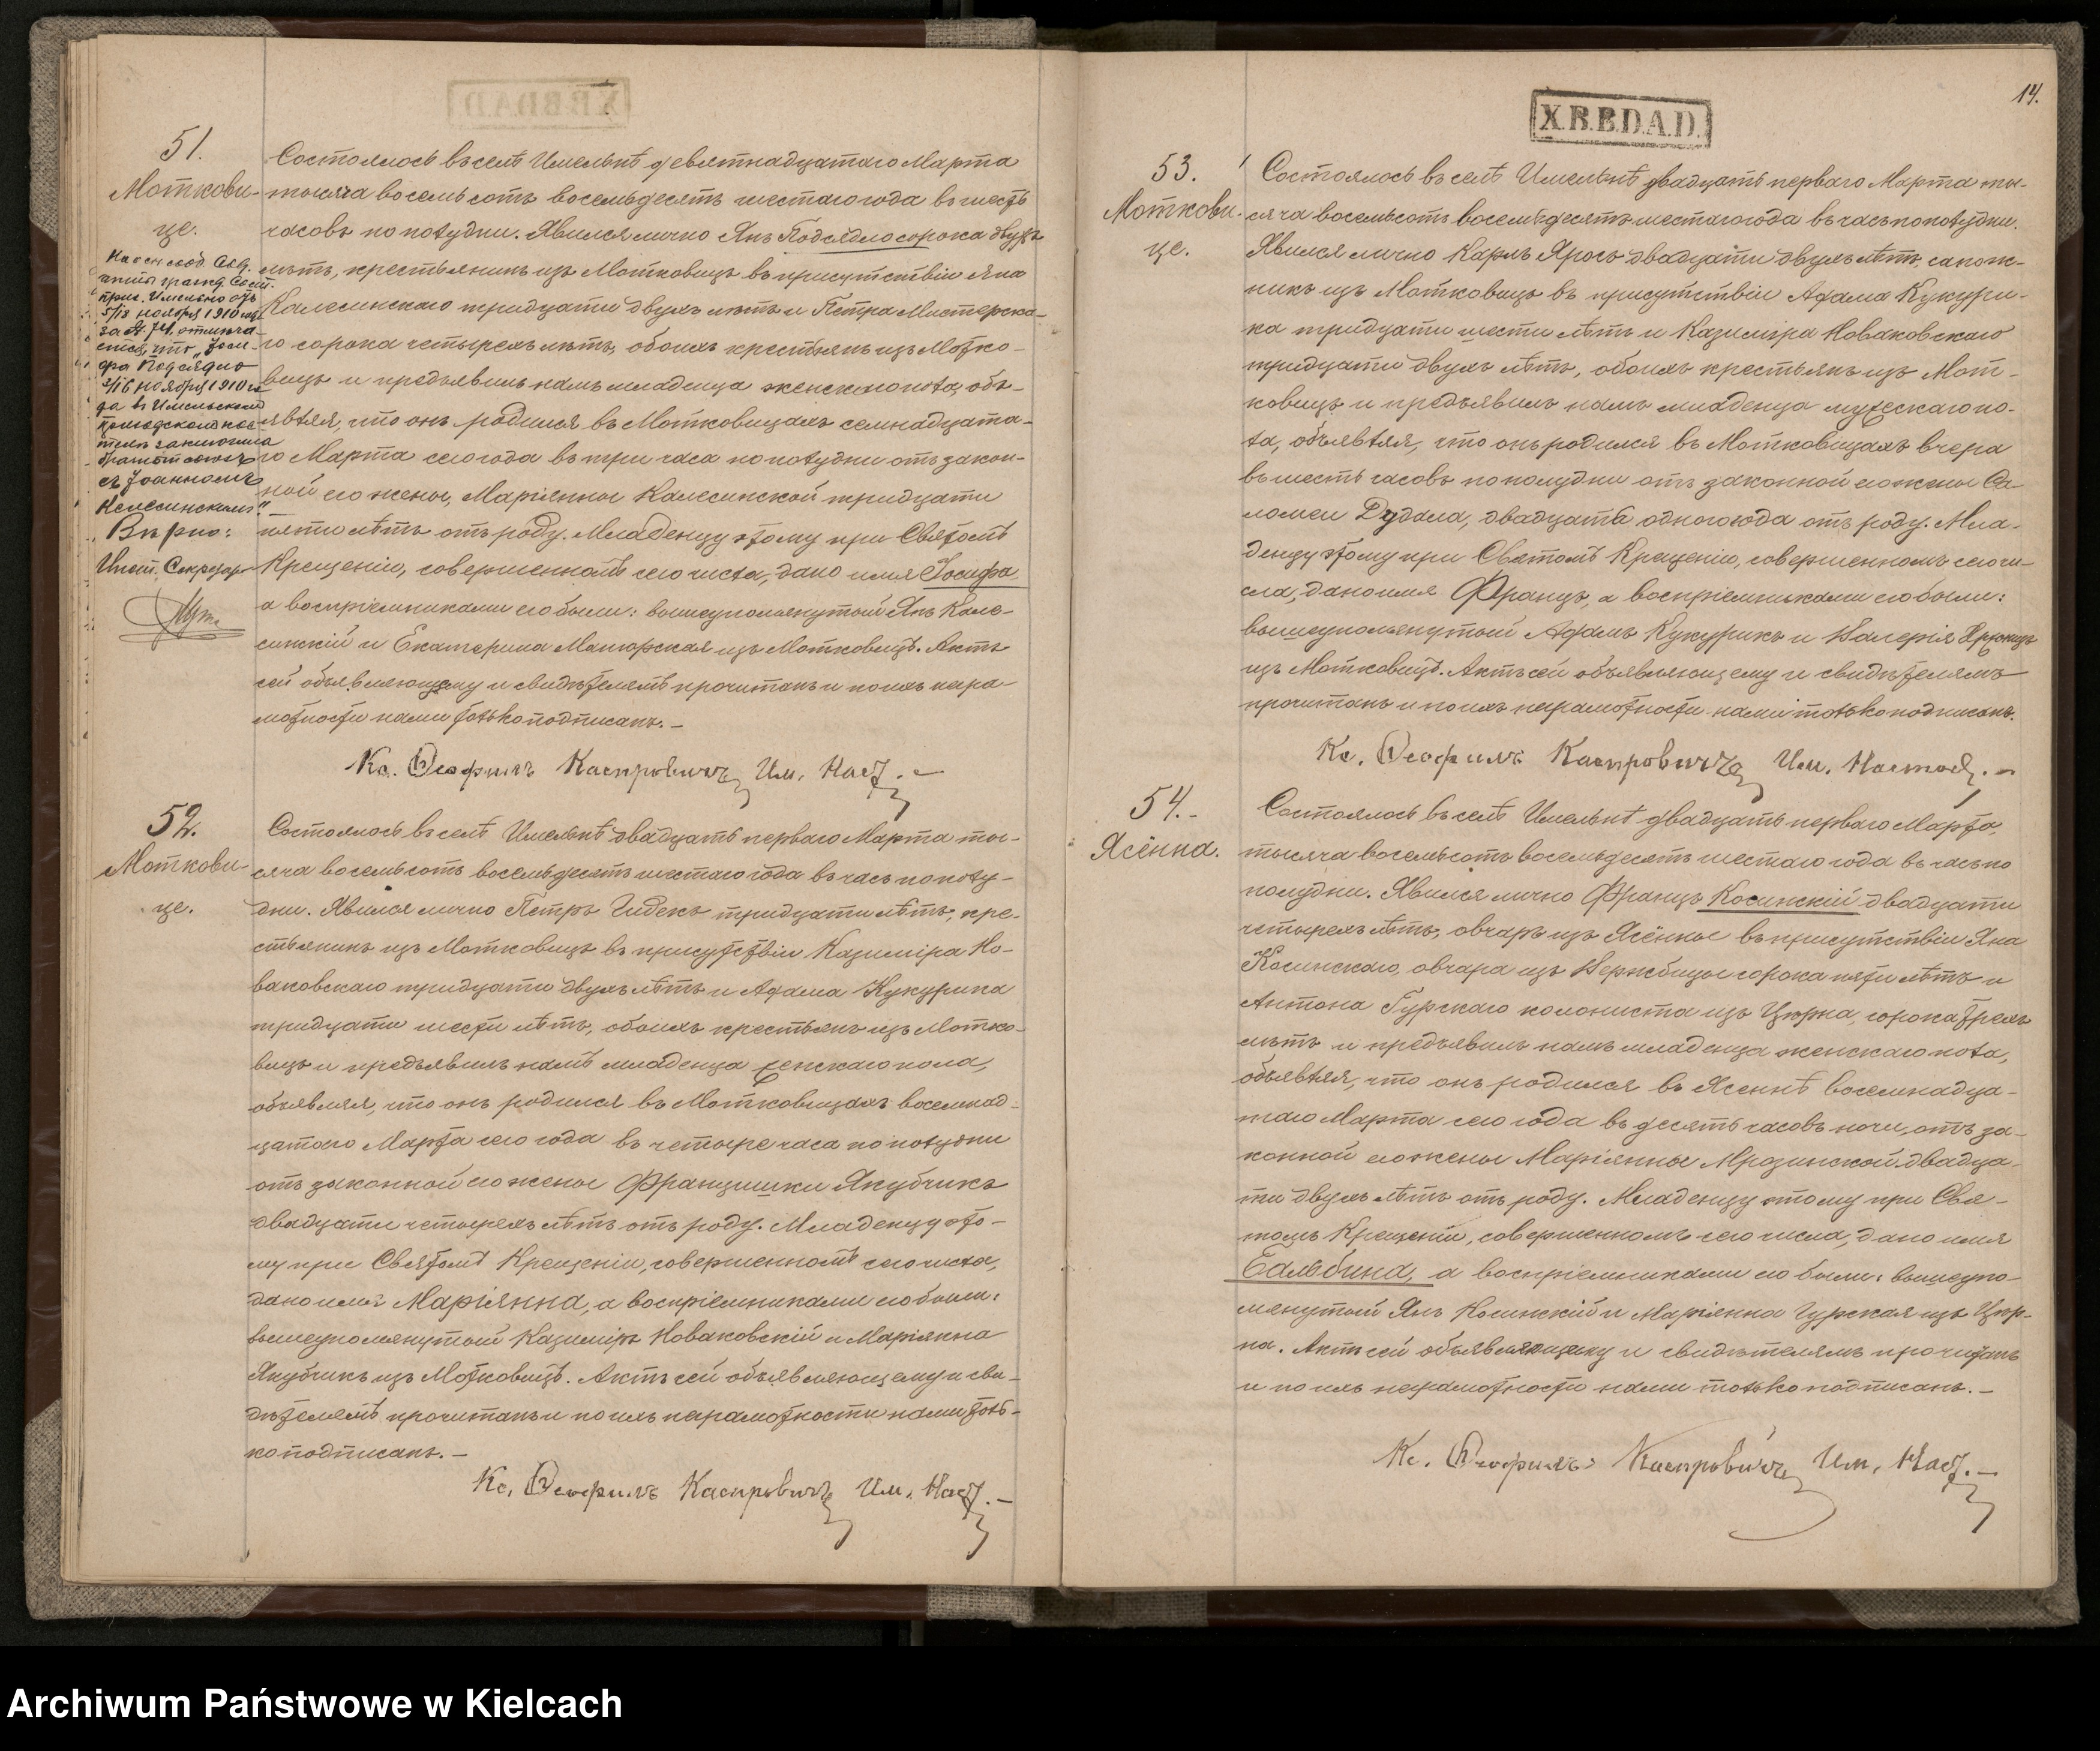 51.
Моткови-
це.
Состоялось въ селѣ Имельнѣ девятнадцатаго Марта
тысяча восемьсотъ восемьдесятъ шестаго года въ шесть
часовъ по полудни. Явился лично Янъ Подсядло сорока двухъ
лѣтъ, крестьянинъ изъ Мотковицъ въ присутствіи Яна
Калесинскаго тридцати двухъ лѣтъ и Петра Мистерска-
го сорока четырехъ лѣтъ, обоихъ крестьянъ изъ Мотко-
вицъ и предъявилъ намъ младенца женскаго пола, объ-
являя, что онъ родился въ Мотковицахъ семнадцата-
го Марта сего года въ три часа по полудни отъ закон-
ной его жены, Маріянны Калесинской тридцати
пяти лѣтъ отъ роду. Младенцу этому при Святомъ
Крещеніи, совершенномъ сего числа, дано имя Іосифа
а воспріемниками его были: вышеупомянутый Янъ Кале-
синскій и Екатерина Манюрская изъ Мотковицъ. Актъ
сей объявляющему и свидѣтелямъ прочитанъ и по ихъ негра-
мотности нами только подписанъ. –
Кс. Ѳеофилъ Каспровичъ Им. Наст. –
за № 74, отмѣча-
ется, что „Іоси-
фа Подсядло
5/18 ноября 1910 го-
да въ Имельскомъ
приходскомъ кос-
телѣ заключила
бракъ
съ Іоанномъ
Вѣрно:
52.
Моткови-
це.
Состоялось въ селѣ Имельнѣ двадцать перваго Марта ты-
сяча восемьсотъ восемьдесятъ шестаго года въ часъ по полу-
дни. Явился лично Петръ Гидекъ тридцати лѣтъ, кре-
стьянинъ изъ Мотковицъ въ присутствіи Казиміра Но-
ваковскаго тридцати двухъ лѣтъ и Адама Кукурика
тридцати шести лѣтъ, обоихъ крестьянъ изъ Мотко-
вицъ и предъявилъ намъ младенца женскаго пола,
объявляя, что онъ родился въ Мотковицахъ восемнад-
цатаго Марта сего года въ четыре часа по полудни
отъ законной его жены Францишки Якубчикъ
двадцати четырехъ лѣтъ отъ роду. Младенцу это-
му при Святомъ Крещеніи, совершенномъ сего числа,
дано имя Маріянна, а воспріемниками его были:
вышеупомянутый Казиміръ Новаковскій и Маріянна
Якубчикъ изъ Мотковицъ. Актъ сей объявляющему и сви-
дѣтелямъ прочитанъ и по ихъ неграмотности нами толь-
ко подписанъ. –
Кс. Ѳеофилъ Каспровичъ Им. Наст. –
14.
X.B.B.D.A.D.
53.
Моткови-
це.
Состоялось въ селѣ Имельнѣ двадцать перваго Марта ты-
сяча восемьсотъ восемьдесятъ шестаго года въ часъ по полудни.
Явился лично Карлъ Яросъ двадцати двухъ лѣтъ, сапож-
никъ изъ Мотковицъ въ присутствіи Адама Кукури-
ка тридцати шести лѣтъ и Казиміра Новаковскаго
тридцати двухъ лѣтъ, обоихъ крестьянъ изъ Мот-
ковицъ и предъявилъ намъ младенца мужескаго по-
ла, объявляя, что онъ родился въ Мотковицахъ вчера
въ шесть часовъ по полудни отъ законной его жены Са-
ломеи Дудала, двадцать одного года отъ роду. Мла-
денцу этому при Святомъ Крещеніи, совершенномъ сего чи-
сла, дано имя Францъ, а воспріемниками его были:
вышеупомянутый Адамъ Кукурикъ и Валерія
изъ Мотковицъ. Актъ сей объявляющему и свидѣтелямъ
прочитанъ и по ихъ неграмотности нами только подписанъ.
Кс. Ѳеофилъ Каспровичъ Им. Настоят. –
54. -
Ясённа.
Состоялось въ селѣ Имельнѣ двадцать перваго Марта
тысяча восемьсотъ восемьдесятъ шестаго года въ часъ по
полудни. Явился лично Францъ Косинскій двадцати
четырехъ лѣтъ, овчаръ изъ Ясённы въ присутствіи Яна
Косинскаго, овчара изъ Вержбицы сорока пяти лѣтъ и
Антона Гурскаго колониста изъ Цярна, сорока трехъ
лѣтъ и предъявилъ намъ младенца женскаго пола,
объявляя, что онъ родился въ Ясеннѣ восемнадца-
таго Марта сего года въ десять часовъ ночи, отъ за-
конной его жены Маріянны Мрозинской двадца-
ти двухъ лѣтъ отъ роду. Младенцу этому при Свя-
томъ Крещеніи, совершенномъ сего числа, дано имя
Бальбина, а воспріемниками его были: вышеупо-
мянутый Янъ Косинскій и Маріянна Гурская изъ Цяр-
на. Актъ сей объявляющему и свидѣтелямъ прочитанъ
и по ихъ неграмотности нами только подписанъ. –
Кс. Ѳеофилъ Каспровичъ Им. Наст. –
Archiwum Państwowe w Kielcach